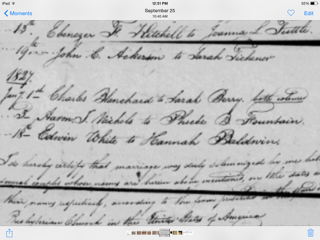 iPad
12:31 PM
10%
Moments
September 25
10:40 AM
Edit
13th Ebenezer F. Mitchell to Joanna L. Tuttle.
19th John C. Ackerson to Sarah Tichenor
1827.
Jany 1st Charles Blanchard to Sarah Berry, both colored
3 Aaron T. Nichols to Phebe B. Fountain.
18th Edwin White to Hannah Baldwin.
I do hereby certify that marriage was duly solemnized by me between
several couples whose names are herein above mentioned, on the dates
their names respectively, according to the
Presbyterian Church in the United States of America